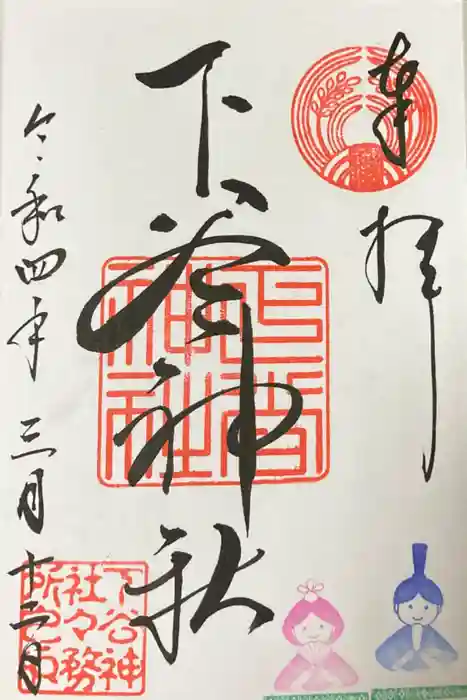 奉拝
下谷神社
令和四年三月十二日
下谷神社
下谷神
社々務
所之印